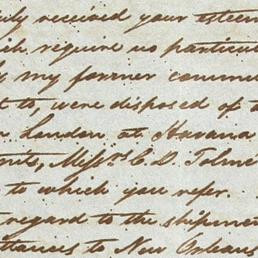 received your esteem
require no particul
my former commu
to, were disposed of a
London at Havana
Messrs. C. D. Tolme
to which you refer.
regard to the shipmen
ittances to New Orleans